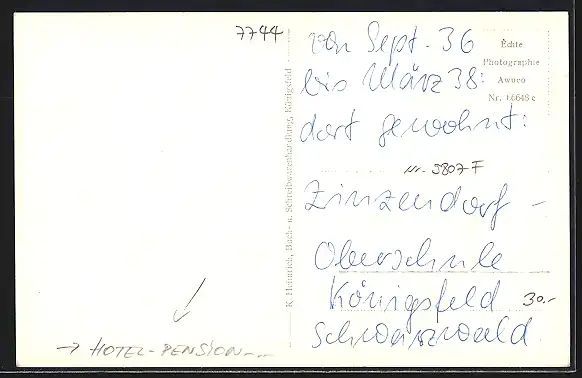 7744
→ HOTEL-PENSION-..
K. Heinrich, Buch- u. Schreibwarenhandlung, Königsfeld
Echte
Photographie
Awuco
von Sept. 36
bis März 38:
dort gewohnt:
Nr. 3807 F
Zinzendorf -
Oberschule
Königsfeld
30.-
Schwarzwald